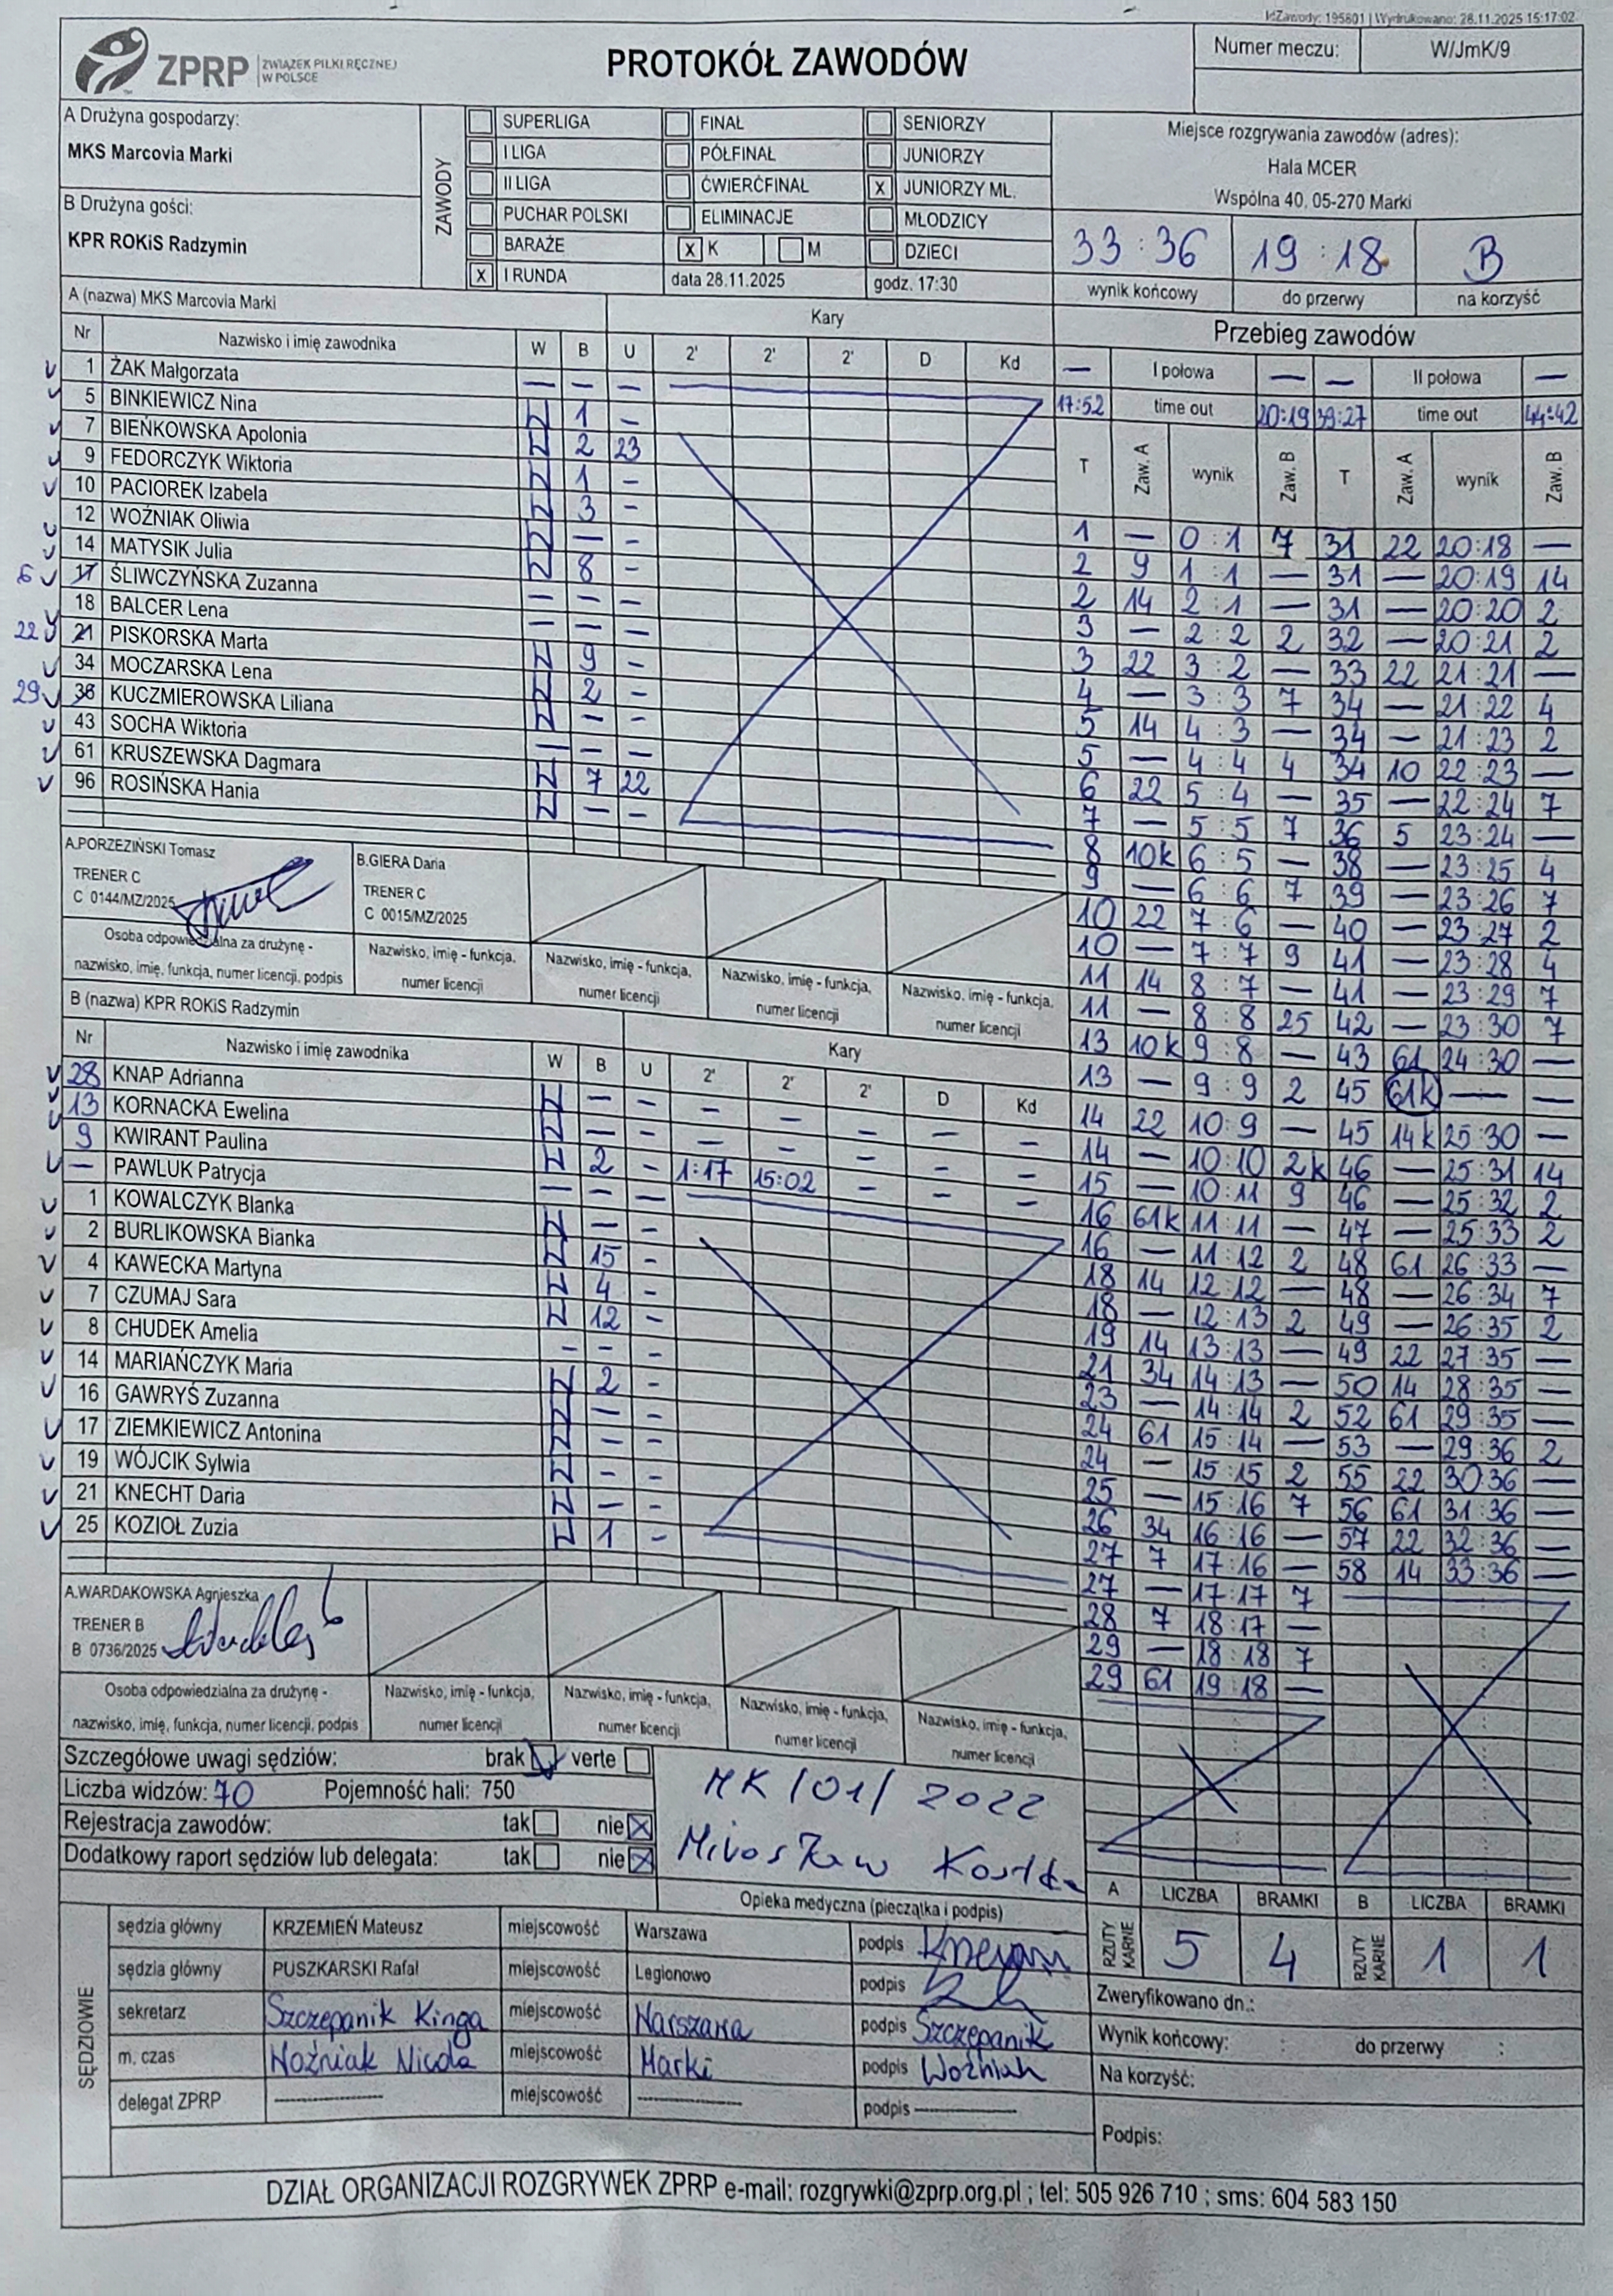 IdZawody: 195801 | Wydrukowano: 28.11.2025 15:17:02
ZPRP ZWIĄZEK PIŁKI RĘCZNEJ W POLSCE
PROTOKÓŁ ZAWODÓW
Numer meczu: W/JmK/9
A Drużyna gospodarzy:
MKS Marcovia Marki
B Drużyna gości:
KPR ROKiS Radzymin
ZAWODY
SUPERLIGA FINAŁ SENIORZY
I LIGA PÓŁFINAŁ JUNIORZY
II LIGA ĆWIERĆFINAŁ X JUNIORZY MŁ.
PUCHAR POLSKI ELIMINACJE MŁODZICY
BARAŻE X K M DZIECI
X I RUNDA data 28.11.2025 godz. 17:30
Miejsce rozgrywania zawodów (adres):
Hala MCER
Wspólna 40, 05-270 Marki
33:36 19:18 B
wynik końcowy do przerwy na korzyść
A (nazwa) MKS Marcovia Marki Kary
Nr Nazwisko i imię zawodnika W B U 2' 2' 2' D Kd
1 ŻAK Małgorzata — — —
5 BINKIEWICZ Nina W 1 -
7 BIEŃKOWSKA Apolonia W 2 23
9 FEDORCZYK Wiktoria W 1 -
10 PACIOREK Izabela W 3 -
12 WOŹNIAK Oliwia W — -
14 MATYSIK Julia W 8 -
6 17 ŚLIWCZYŃSKA Zuzanna — — —
18 BALCER Lena — — —
22 21 PISKORSKA Marta W 9 -
34 MOCZARSKA Lena W 2 -
29 36 KUCZMIEROWSKA Liliana W - -
43 SOCHA Wiktoria — — —
61 KRUSZEWSKA Dagmara W 7 22
96 ROSIŃSKA Hania W — -
A.PORZEZIŃSKI Tomasz
TRENER C
C 0144/MZ/2025
B.GIERA Daria
TRENER C
C 0015/MZ/2025
Osoba odpowiedzialna za drużynę - nazwisko, imię, funkcja, numer licencji, podpis
Nazwisko, imię - funkcja, numer licencji
Nazwisko, imię - funkcja, numer licencji
Nazwisko, imię - funkcja, numer licencji
Nazwisko, imię - funkcja, numer licencji
B (nazwa) KPR ROKiS Radzymin Kary
Nr Nazwisko i imię zawodnika W B U 2' 2' 2' D Kd
28 KNAP Adrianna W — — — — — — —
13 KORNACKA Ewelina W — — — — — — —
9 KWIRANT Paulina W 2 - 1:17 15:02 - - -
— PAWLUK Patrycja — — —
1 KOWALCZYK Blanka W — -
2 BURLIKOWSKA Bianka W 15 -
4 KAWECKA Martyna W 4 -
7 CZUMAJ Sara W 12 -
8 CHUDEK Amelia - - -
14 MARIAŃCZYK Maria W 2 -
16 GAWRYŚ Zuzanna W — -
17 ZIEMKIEWICZ Antonina W — -
19 WÓJCIK Sylwia W - -
21 KNECHT Daria W — -
25 KOZIOŁ Zuzia W 1 -
A.WARDAKOWSKA Agnieszka
TRENER B
B 0736/2025
Osoba odpowiedzialna za drużynę - nazwisko, imię, funkcja, numer licencji, podpis
Nazwisko, imię - funkcja, numer licencji
Nazwisko, imię - funkcja, numer licencji
Nazwisko, imię - funkcja, numer licencji
Nazwisko, imię - funkcja, numer licencji
Przebieg zawodów
— I połowa — — II połowa —
17:52 time out 20:19 39:27 time out 44:42
T Zaw. A wynik Zaw. B T Zaw. A wynik Zaw. B
1 — 0:1 7 31 22 20:18 —
2 9 1:1 — 31 — 20:19 14
2 14 2:1 — 31 — 20:20 2
3 — 2:2 2 32 — 20:21 2
3 22 3:2 — 33 22 21:21 —
4 — 3:3 7 34 — 21:22 4
5 14 4:3 — 34 — 21:23 2
5 — 4:4 4 34 10 22:23 —
6 22 5:4 — 35 — 22:24 7
7 — 5:5 7 36 5 23:24 —
8 10k 6:5 — 38 — 23:25 4
9 — 6:6 7 39 — 23:26 7
10 22 7:6 — 40 — 23:27 2
10 — 7:7 9 41 — 23:28 4
11 14 8:7 — 41 — 23:29 7
11 — 8:8 25 42 — 23:30 7
13 10k 9:8 — 43 61 24:30 —
13 — 9:9 2 45 61k — —
14 22 10:9 — 45 14k 25:30 —
14 — 10:10 2k 46 — 25:31 14
15 — 10:11 9 46 — 25:32 2
16 61k 11:11 — 47 — 25:33 2
16 — 11:12 2 48 61 26:33 —
18 14 12:12 — 48 — 26:34 7
18 — 12:13 2 49 — 26:35 2
19 14 13:13 — 49 22 27:35 —
21 34 14:13 — 50 14 28:35 —
23 — 14:14 2 52 61 29:35 —
24 61 15:14 — 53 — 29:36 2
24 — 15:15 2 55 22 30:36 —
25 — 15:16 7 56 61 31:36 —
26 34 16:16 — 57 22 32:36 —
27 7 17:16 — 58 14 33:36 —
27 — 17:17 7
28 7 18:17 —
29 — 18:18 7
29 61 19:18 —
Szczegółowe uwagi sędziów: brak verte
Liczba widzów: 70 Pojemność hali: 750
Rejestracja zawodów: tak nie X
Dodatkowy raport sędziów lub delegata: tak nie X
MK/01/2022
Mirosław
Opieka medyczna (pieczątka i podpis)
A LICZBA BRAMKI B LICZBA BRAMKI
RZUTY KARNE 5 4 RZUTY KARNE 1 1
SĘDZIOWIE
sędzia główny KRZEMIEŃ Mateusz miejscowość Warszawa podpis
sędzia główny PUSZKARSKI Rafał miejscowość Legionowo podpis
sekretarz Szczepanik Kinga miejscowość Warszawa podpis Szczepanik
m. czas Woźniak Nicola miejscowość Marki podpis Woźniak
delegat ZPRP ---------- miejscowość ---------- podpis ----------
Zweryfikowano dn.:
Wynik końcowy: : do przerwy :
Na korzyść:
Podpis:
DZIAŁ ORGANIZACJI ROZGRYWEK ZPRP e-mail: rozgrywki@zprp.org.pl ; tel: 505 926 710 ; sms: 604 583 150